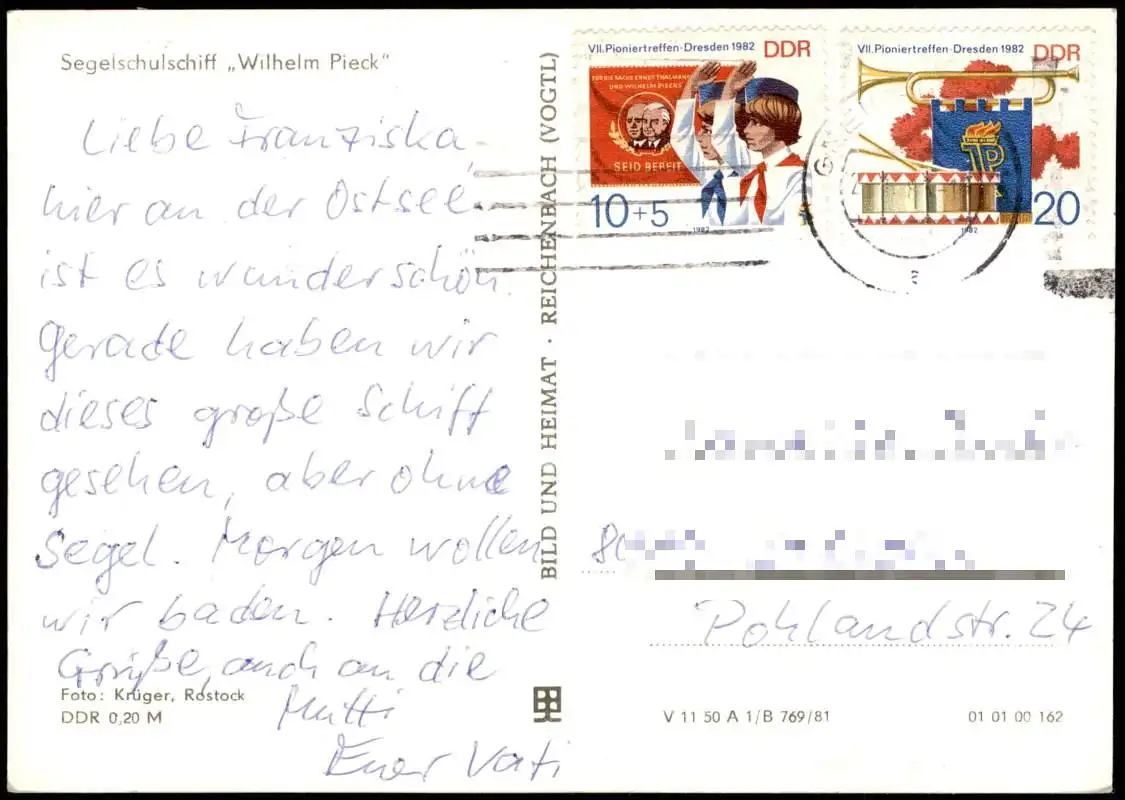 Segelschulschiff „Wilhelm Pieck"
Liebe Franziska,
hier an der Ostsee
ist es wunderschön.
Gerade haben wir
dieses große Schiff
gesehen, aber ohne
Segel. Morgen wollen
wir baden. Herzliche
Grüße, auch an die
Mutti
Euer Vati
Foto: Krüger, Rostock
DDR 0,20 M
BILD UND HEIMAT · REICHENBACH (VOGTL)
VII. Pioniertreffen · Dresden 1982 DDR
FÜR DIE SACHE ERNST THÄLMANNS
UND WILHELM PIECKS
SEID BEREIT
10+5
1982
VII. Pioniertreffen · Dresden 1982 DDR
20
1982
Pohlandstr. 24
V 11 50 A 1/B 769/81
01 01 00 162